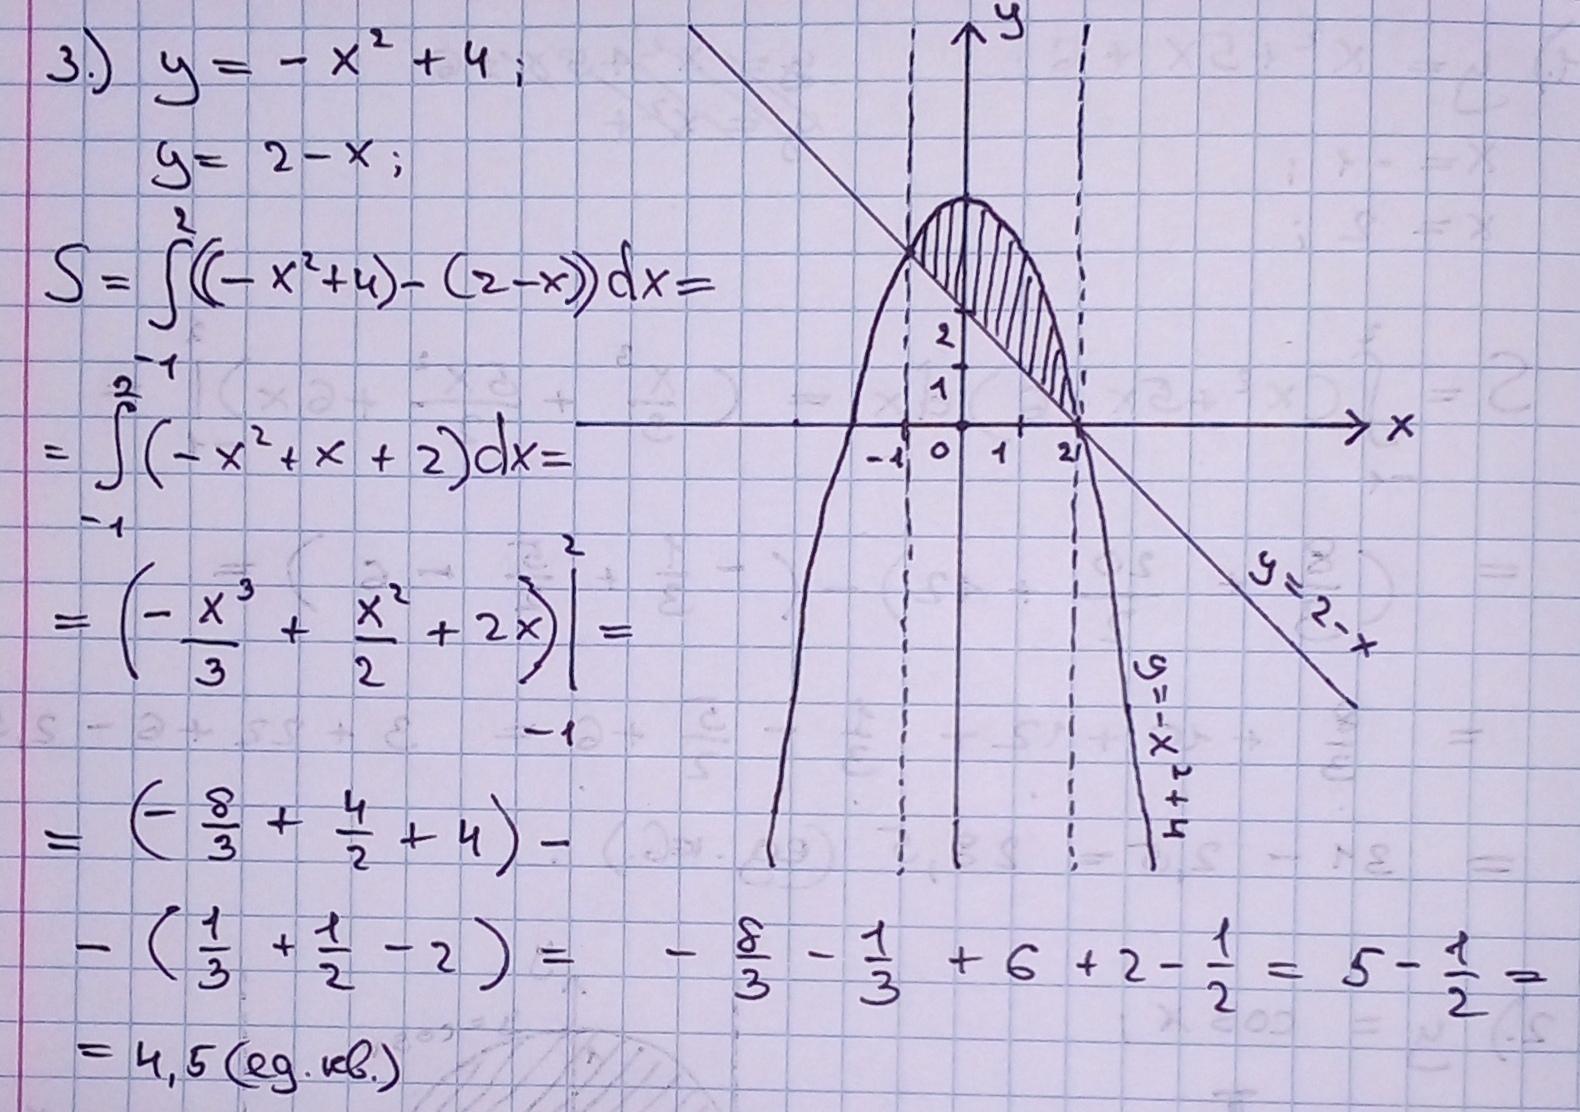 3.) y = - x² + 4;
y = 2 - x;
S = ∫₋₁² ((- x² + 4) - (2 - x)) dx =
= ∫₋₁² (- x² + x + 2) dx =
= (- x³/3 + x²/2 + 2x) |₋₁² =
= (- 8/3 + 4/2 + 4) -
- (1/3 + 1/2 - 2) = - 8/3 - 1/3 + 6 + 2 - 1/2 = 5 - 1/2 =
= 4,5 (ед. кв.)
y
2
1
-1 0 1 2 x
y = 2 - x
y = - x² + 4